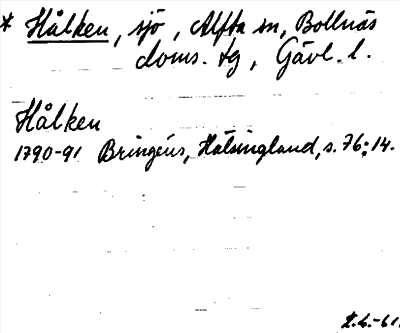 * Hålken, sjö, Alfta sn, Bollnäs
doms. tg, Gävl. l.
Hålken
1790-91 Bringéus, Hälsingland, s. 76:14.